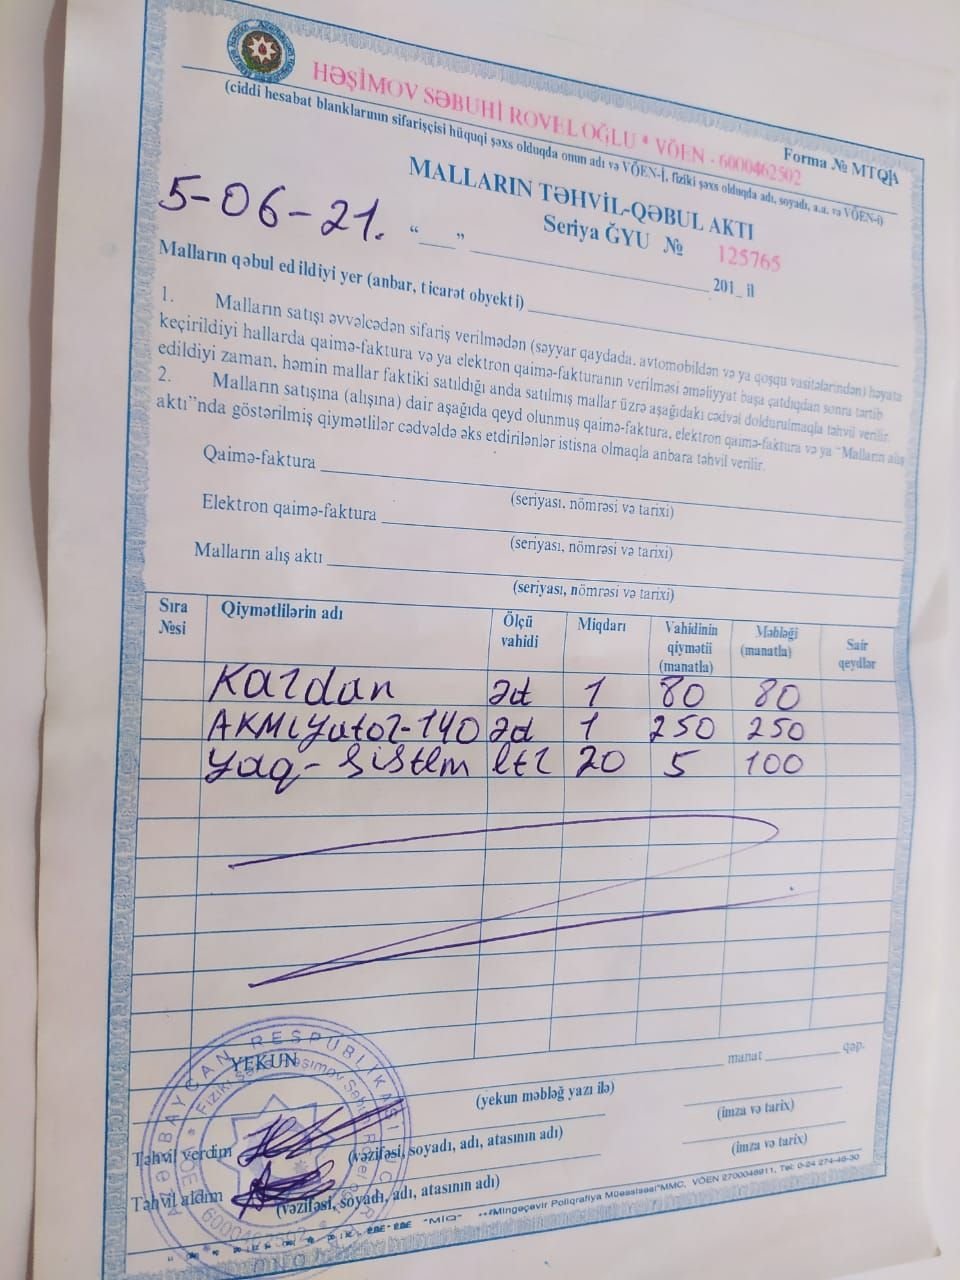 HƏŞİMOV SƏBUHİ ROVEL OĞLU * VÖEN - 6000462502
(ciddi hesabat blanklarının sifarişçisi hüquqi şəxs olduqda onun adı və VÖEN-i, fiziki şəxs olduqda adı, soyadı, a.a. və VÖEN-i)
Forma № MTQA
MALLARIN TƏHVİL-QƏBUL AKTI
5-06-21.
Seriya ĞYU № 125765
"___" ____________ 201_ il
Malların qəbul edildiyi yer (anbar, ticarət obyekti)
1. Malların satışı əvvəlcədən sifariş verilmədən (səyyar qaydada, avtomobildən və ya qoşqu vasitələrindən) həyata
keçirildiyi hallarda qaimə-faktura və ya elektron qaimə-fakturanın verilməsi əməliyyat başa çatdıqdan sonra tərtib
edildiyi zaman, həmin mallar faktiki satıldığı anda satılmış mallar üzrə aşağıdakı cədvəl doldurulmaqla təhvil verilir.
2. Malların satışına (alışına) dair aşağıda qeyd olunmuş qaimə-faktura, elektron qaimə-faktura və ya "Malların alış
aktı"nda göstərilmiş qiymətlilər cədvəldə əks etdirilənlər istisna olmaqla anbara təhvil verilir.
Qaimə-faktura
(seriyası, nömrəsi və tarixi)
Elektron qaimə-faktura
(seriyası, nömrəsi və tarixi)
Malların alış aktı
(seriyası, nömrəsi və tarixi)
Sıra №si Qiymətlilərin adı Ölçü vahidi Miqdarı Vahidinin qiymətii (manatla) Məbləği (manatla) Sair qeydlər
Kardan əd 1 80 80
AKMlyator-140 əd 1 250 250
yaq-sistem ltr 20 5 100
YEKUN manat qəp.
(yekun məbləğ yazı ilə)
(imza və tarix)
Təhvil verdim (vəzifəsi, soyadı, adı, atasının adı)
(imza və tarix)
Təhvil aldım (vəzifəsi, soyadı, adı, atasının adı)
"MİQ" Mingəçevir Poliqrafiya Müəssisəsi" MMC, VÖEN 2700046911, Tel: 0-24 274-46-30
AZƏRBAYCAN RESPUBLİKASI